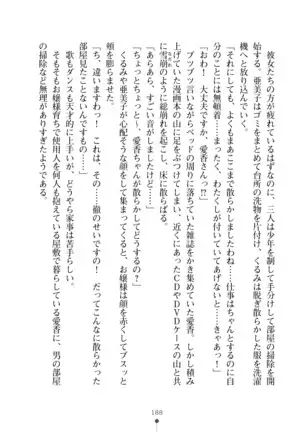 彼女たちが疲れているはずはなく、三人は少年を制して手分けし部屋の掃除を開
始する。亜美子はゴミをまとめて台所の洗物を片付け、くるみは脱ぎ散らかした服を洗濯
機へと放り込んでいく。
「それにしても、よくまああここまで散らかしましたわね……仕事はちゃんとするのに自
分のことには無頓着……まったく、わたくしが付いていてあげないと……きゃあっ！」
「おわ！　大丈夫ですか、愛香さん!?」
ブツブツ言いながらベッドの周りに落ちていた雑誌をかき集めていた愛香。しかし積み
上げていた漫画本の山に足をつけてしまい、近くにあったＣＤやＤＶＤケースの山と共
に雪崩のように総崩れを起こし、床に散らばる。
「あらあら、すごい音がしたけど……」
「ちょっとちょっと～、愛香ちゃんが散らかしてどうするの？」
くるみや亜美子が心配そうな顔を して集まってくると、お嬢様は顔を赤くしてブスッと
頬を膨らませる。
「ち、違いますわっ！　これは、その……徹のせいですわ！　だってこんなに散らかって
いたら、歩く場所もないんですもの……」
歌もダンスも天才的に上手い愛香だが、どうやら家事は苦手らしい。
そもそもお嬢様育ちで使用人を何人も抱えている屋敷で暮らしている愛香に、男の部屋
の掃除など無理がありすぎたようである。
188